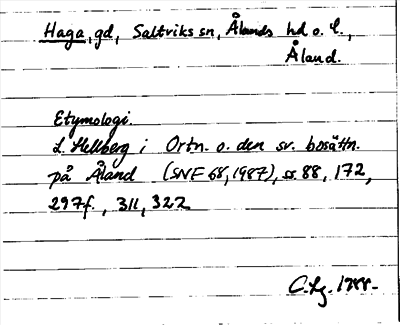 Haga, gd, Saltviks sn, Ålands hd o. l.,
Åland.
Etymologi.
L. Hellberg i Ortn. o. den sv. bosättn.
på Åland (SNF 68, 1987), ss. 88, 172,
297f., 311, 322
1988.